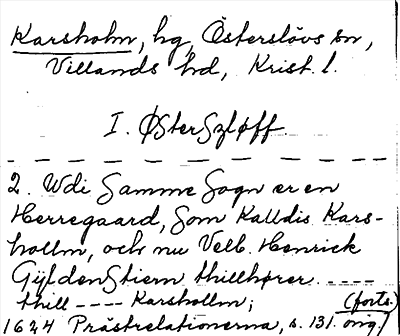 Karsholm, hg, Österslövs sn,
Villands hd, Krist. l.
I. ØsterSzløff.
2. Wdi Samme Sogn er en
Herregaard, Som Kalldis Kars-
hollm, och nu Velb. Henrick
GÿldenStiern thillhører. ----
thill ---- Karshollm; (forts.)
1624 Prästrelationerna, s. 131. orig.